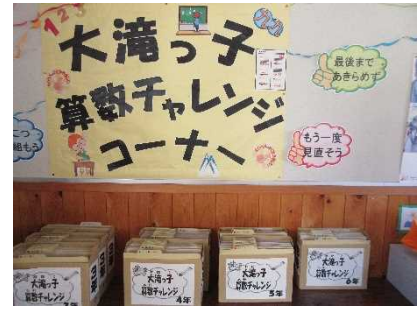 123
大滝っ子
算数チャレンジ
コーナー
最後まで
あきらめず
もう一度
見直そう
こつ
組もう
3年
大滝っ子
算数チャレンジ
大滝っ子
算数チャレンジ
4年
大滝っ子
算数チャレンジ
5年
大滝っ子
算数チャレンジ
6年